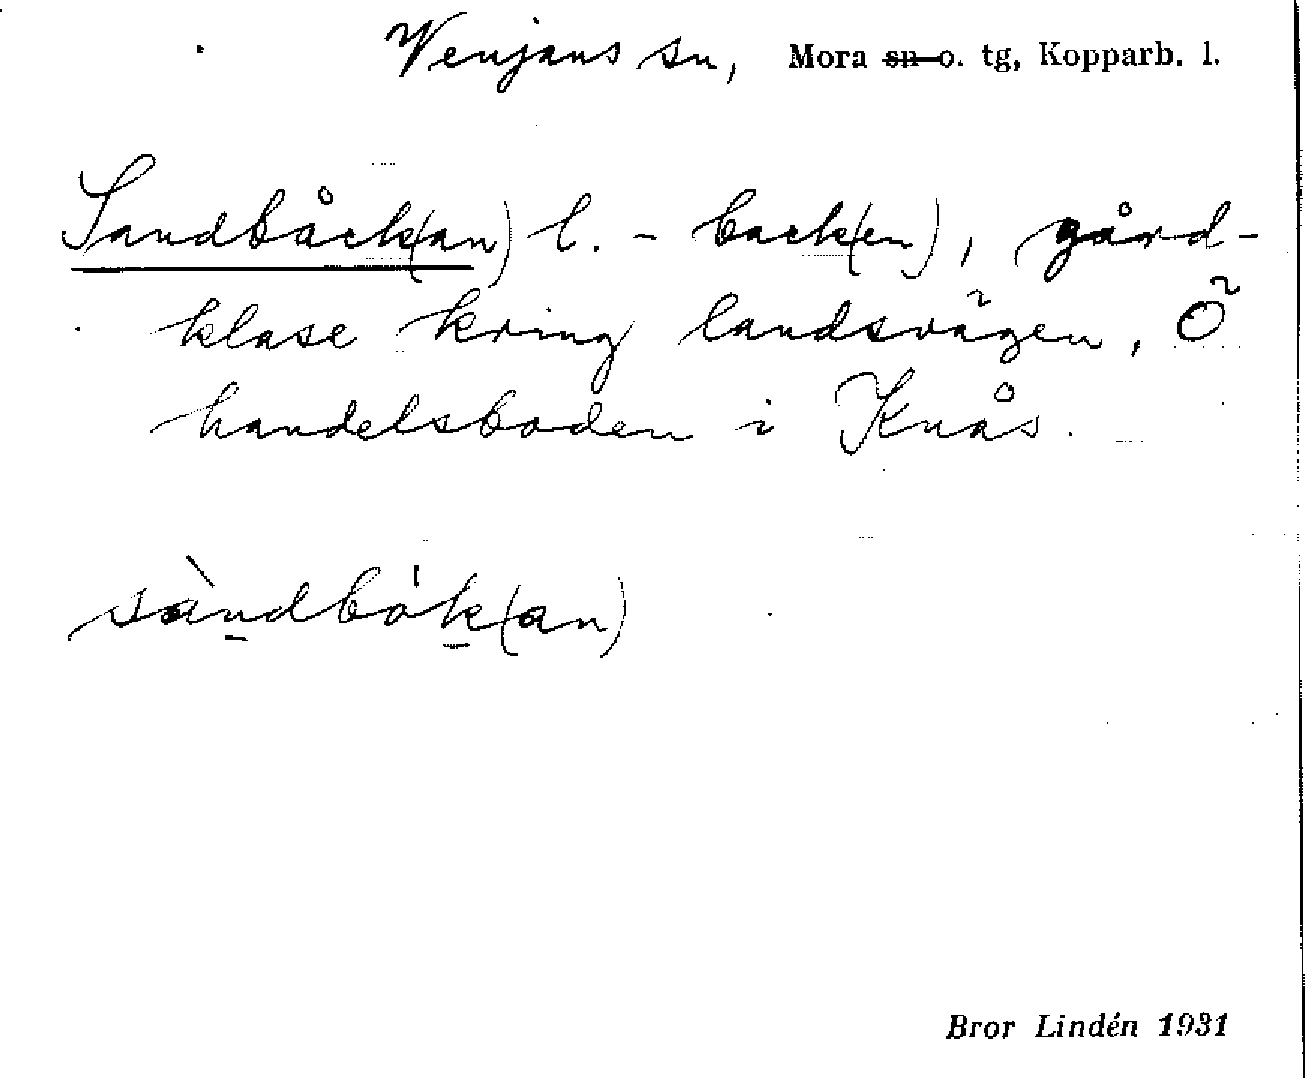 Venjans sn, Mora sn o. tg, Kopparb. l.
Sandbåck(an) l. - back(en), gård-
klase kring landsvägen, Ö
handelsboden i Knås.
sàndbók(an)
Bror Lindén 1931